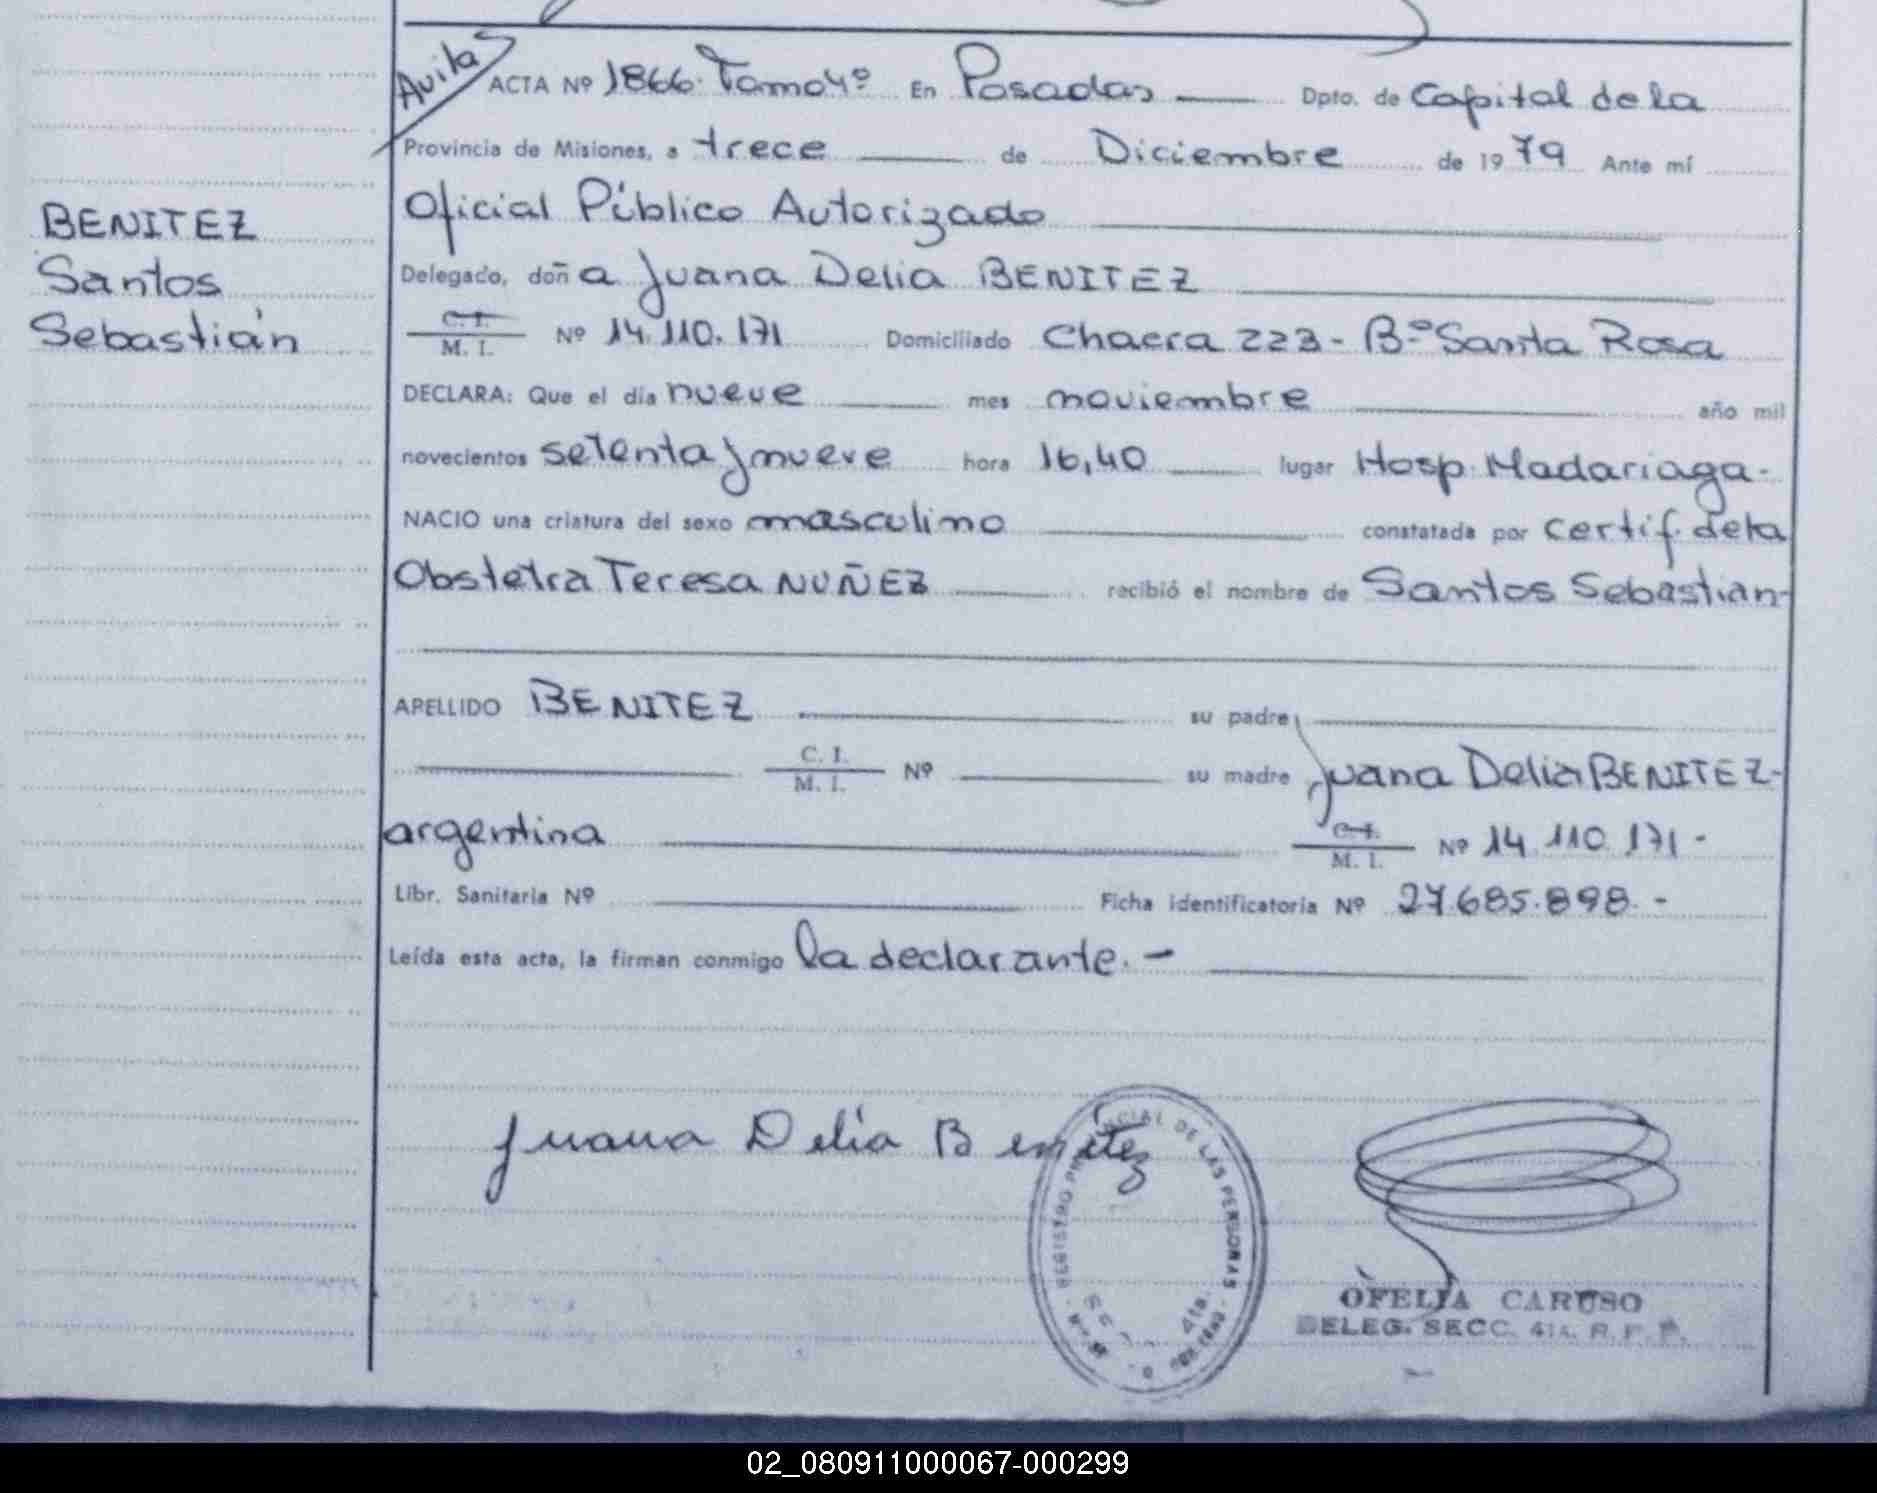 Avila
ACTA Nº 1866. Tomo 4º En Posadas Dpto. de Capital de la
Provincia de Misiones, a trece de Diciembre de 1979 Ante mí
Oficial Público Autorizado
Delegado, doña Juana Delia BENITEZ
C. I.
M. I. Nº 14.110.171 Domiciliado Chacra 223 - Bº Santa Rosa
DECLARA: Que el día nueve mes noviembre año mil
novecientos setenta y nueve hora 16,40 lugar Hosp. Madariaga.-
NACIO una criatura del sexo masculino constatada por certif. de la
Obstetra Teresa NUÑEZ recibió el nombre de Santos Sebastian-
APELLIDO BENITEZ su padre
C. I.
M. I. Nº su madre Juana Delia BENITEZ-
argentina C. I.
M. I. Nº 14.110.171-
Libr. Sanitaria Nº Ficha identificatoria Nº 27.685.898.-
Leída esta acta, la firman conmigo la declarante.-
BENITEZ
Santos
Sebastián
Juana Delia Benitez
REGISTRO PROVINCIAL DE LAS PERSONAS
SECC. 4ta.
OFELIA CARUSO
DELEG. SECC. 4ta. R. P. P.
02_080911000067-000299